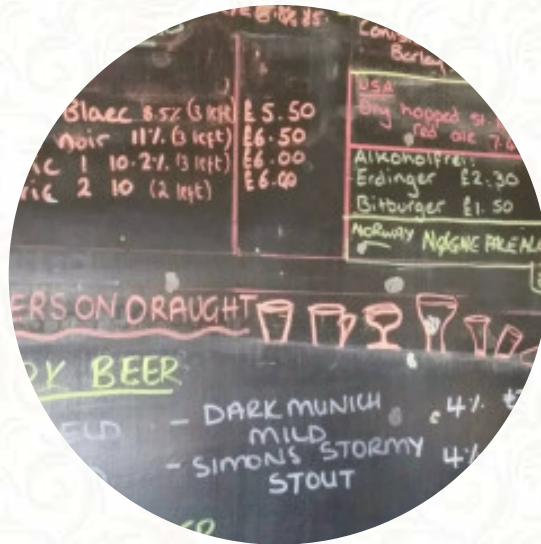 Blaec 8.5% (3 left) £5.50
Noir 11% (3 left) £6.50
1 10.2% (3 left) £6.00
2 10 (2 left) £6.00
Barley
USA
Dry hopped
red ale 7.4
Alkoholfrei:
Erdinger £2.30
Bitburger £1.50
NORWAY NØGNE PALE AL
ERS ON DRAUGHT
BEER
ELD - DARK MUNICH 4%
MILD
- SIMONS STORMY 4%
STOUT